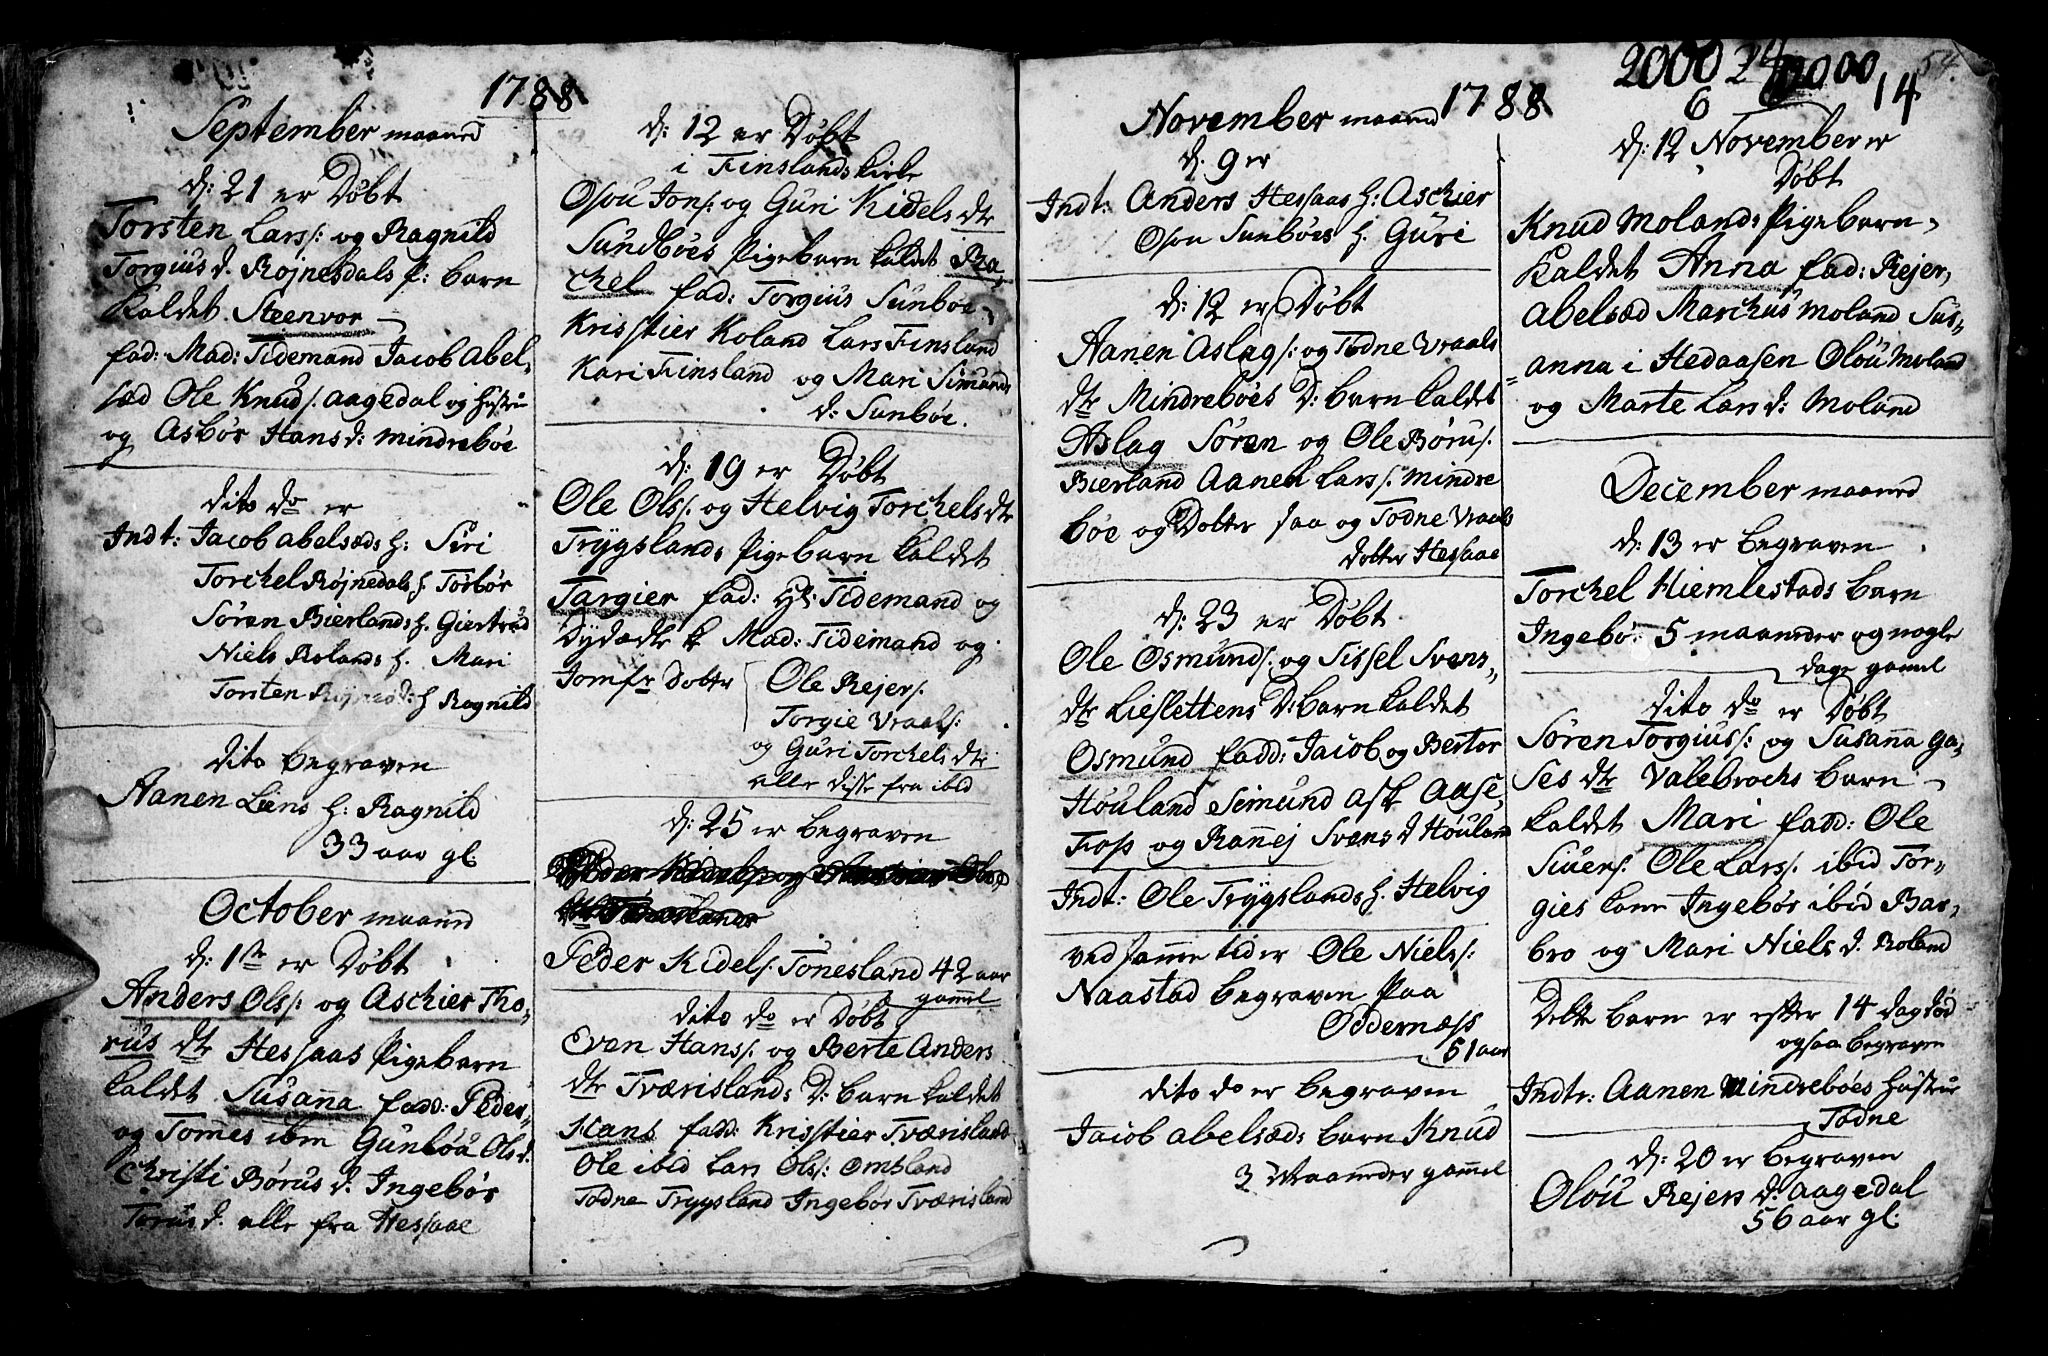 1788
September maaned
d: 21 er Døbt
Torsten Lars: og Ragnild
Torgius d. Røjnesdals p: barn
kaldet Steenvor
fad: Mad: Tidemand Jacob Abel,
sæd Ole Knuds. Aagedal og Hustru
og Asbør Hans d: mindrebøe
dito do er
Indt: Jacob abelsæds h: Siri
Torchel Røjnedals h. Torbør
Søren Bierlands h. Giertrud
Niels Rolands h. Mari
Torsten h Ragnild
dito begraven
Aanen Liens h: Ragnild
33 aar gl:
October maaned
d: 1te er Døbt
Anders Ols: og Aschier Tho,
rus dtr Hessaas Pigebarn
kaldet Susanna fadd: Peder,
og Tomes ibm Gunboü Ols d:
Christi Børus d. Ingebør
Torus d. alle fra Hessaae
d: 12 er Døbt
i Finslands kirke
Osou Jons: og Guri Kidels dtr
Sundbøes Pigebarn kaldet Ra,
chel fad: Torgius Sunboe
Krisstier Roland Lars Finsland
Kari Finsland og Mari Simunds
d: Sunbøe.
d: 19 er Døbt
Ole Ols: og Helvig Torchels dtr
Trygslands Pigebarn kaldet
Targier fad: Hr: Tidemand og
Dydædle k Mad: Tidemand og
Jomfr dotter Ole Rejers:
Torgie Vraals:
og Guri Torchels dtr
alle disse fra ibid
d: 25 er begraven
Peder Kidels: Tonesland 42 aar
gamel
dito do er Døbt
Even Hans: og Berte Anders
dtr Tværislands D: barn kaldet
Hans fadd: Krisstier Tværisland
Ole ibid Lars Ols: Omsland
Todne Trygsland Ingebor Tværisland
November maaned 1788
d. 9 er
Indt: Anders Hessaas h: Aschier
Osou Sunbøes h. Guri
d: 12 er Døbt
Aanen Aslags: og Todne Vraals
dtr Mindrebøes D: barn kaldet
Aslag Søren og Ole Børus:
Bierland Aanen Lars: mindre
bøe og Dotter saa og Todne Vraals
dotter Hessaae
d: 23 er Døbt
Ole Osmunds: og Sissel Svens,
dtr Lieslettens D: barn kaldet
Osmund fadd: Jacob og Bertor
Høuland Seimund Ask Aase
Foss og Ranej Svens d Høuland
Indt: Ole Trygslands h. Helvig
ved same tid er Ole Niels:
Naastad begraven paa
Oddernæss
51 aar
dito do er begraven
Jacob abelsæds barn Knud
3 Maaneder gamel
2000 24 12000 54.
6 14
d: 12 November er
Døbt
Knud Molands Pigebarn
kaldet Anna fad: Rejer,
Abelsæd Marchus Moland Sus,
anna i Hedaasen Oloü Moland
og Marte Lars d: Moland
December maaned
d: 13 er begraven
Torchel Hiemlestads barn
Ingebø: 5 maaneder og nogle
dage gamel
dito do er Døbt
Søren Torgius: og Susanna Ga,
ses dtr Valebrochs barn
kaldet Mari fadd: Ole
Sivers: Ole Lars: ibid Tor,
gies kone Ingebør ibid Bar,
bro og Mari Niels d. Roland
Dette barn er efter 14 dag død
ogsaa begraven
Indtr: Aanen Mindrebøes Hustru
Todne
d: 20 er begraven
Oloü Rejers d: aagedal
56 aar gl: